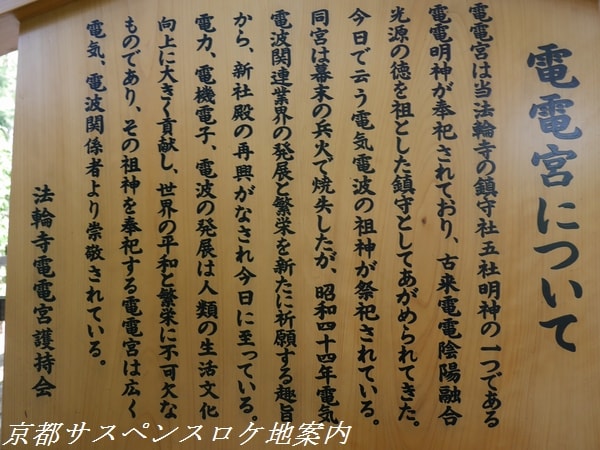 電電宮について
電電宮は当法輪寺の鎮守社五社明神の一つである
電電明神が奉祀されており、古来電電陰陽融合
光源の徳を祖とした鎮守としてあがめられてきた。
今日で云う電気電波の祖神が祭祀されている。
同宮は幕末の兵火で焼失したが、昭和四十四年電気
電波関連業界の発展と繁栄を新たに祈願する趣旨
から、新社殿の再興がなされ今日に至っている。
電力、電機電子、電波の発展は人類の生活文化
向上に大きく貢献し、世界の平和と繁栄に不可欠な
ものであり、その祖神を奉祀する電電宮は広く
電気、電波関係者より崇敬されている。
法輪寺電電宮護持会
京都サスペンスロケ地案内